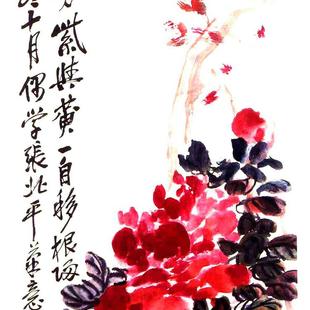 紫姚黄一自移根海
冬十月偶学張北平筆意